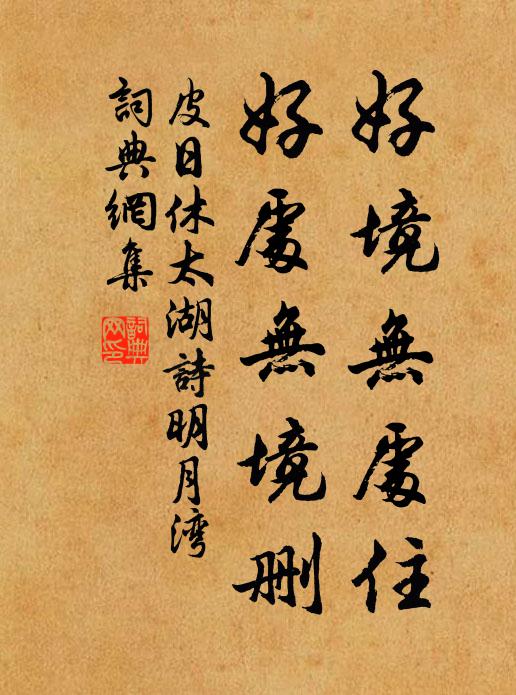 好境無處住
好處無境刪
皮日休太湖詩明月湾
詞典網集
詞典网印